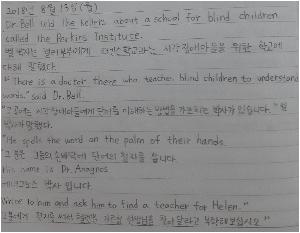 2018년 8월 13일(월)
Dr. Bell told the Kellers about a school for blind children
called the Perkins Institute.
벨 박사는 켈러부부에게 퍼킨스학교라는 시각장애아들을 위한 학교에
대해 말했다.
"There is a doctor there who teaches blind children to understand
words," said Dr. Bell.
"그곳에는 시각장애아들에게 단어를 이해하는 방법을 가르치는 박사가 있습니다." 벨
박사가 말했다.
"He spells the word on the palm of their hands.
그 분은 그들의 손바닥에 단어의 철자를 씁니다.
His name is Dr. Anagnos
박사 입니다.
Write to him and ask him to find a teacher for Helen."
그분에게 편지를 써서 헬렌을 가르칠 선생님을 찾아달라고 부탁해보십시오"